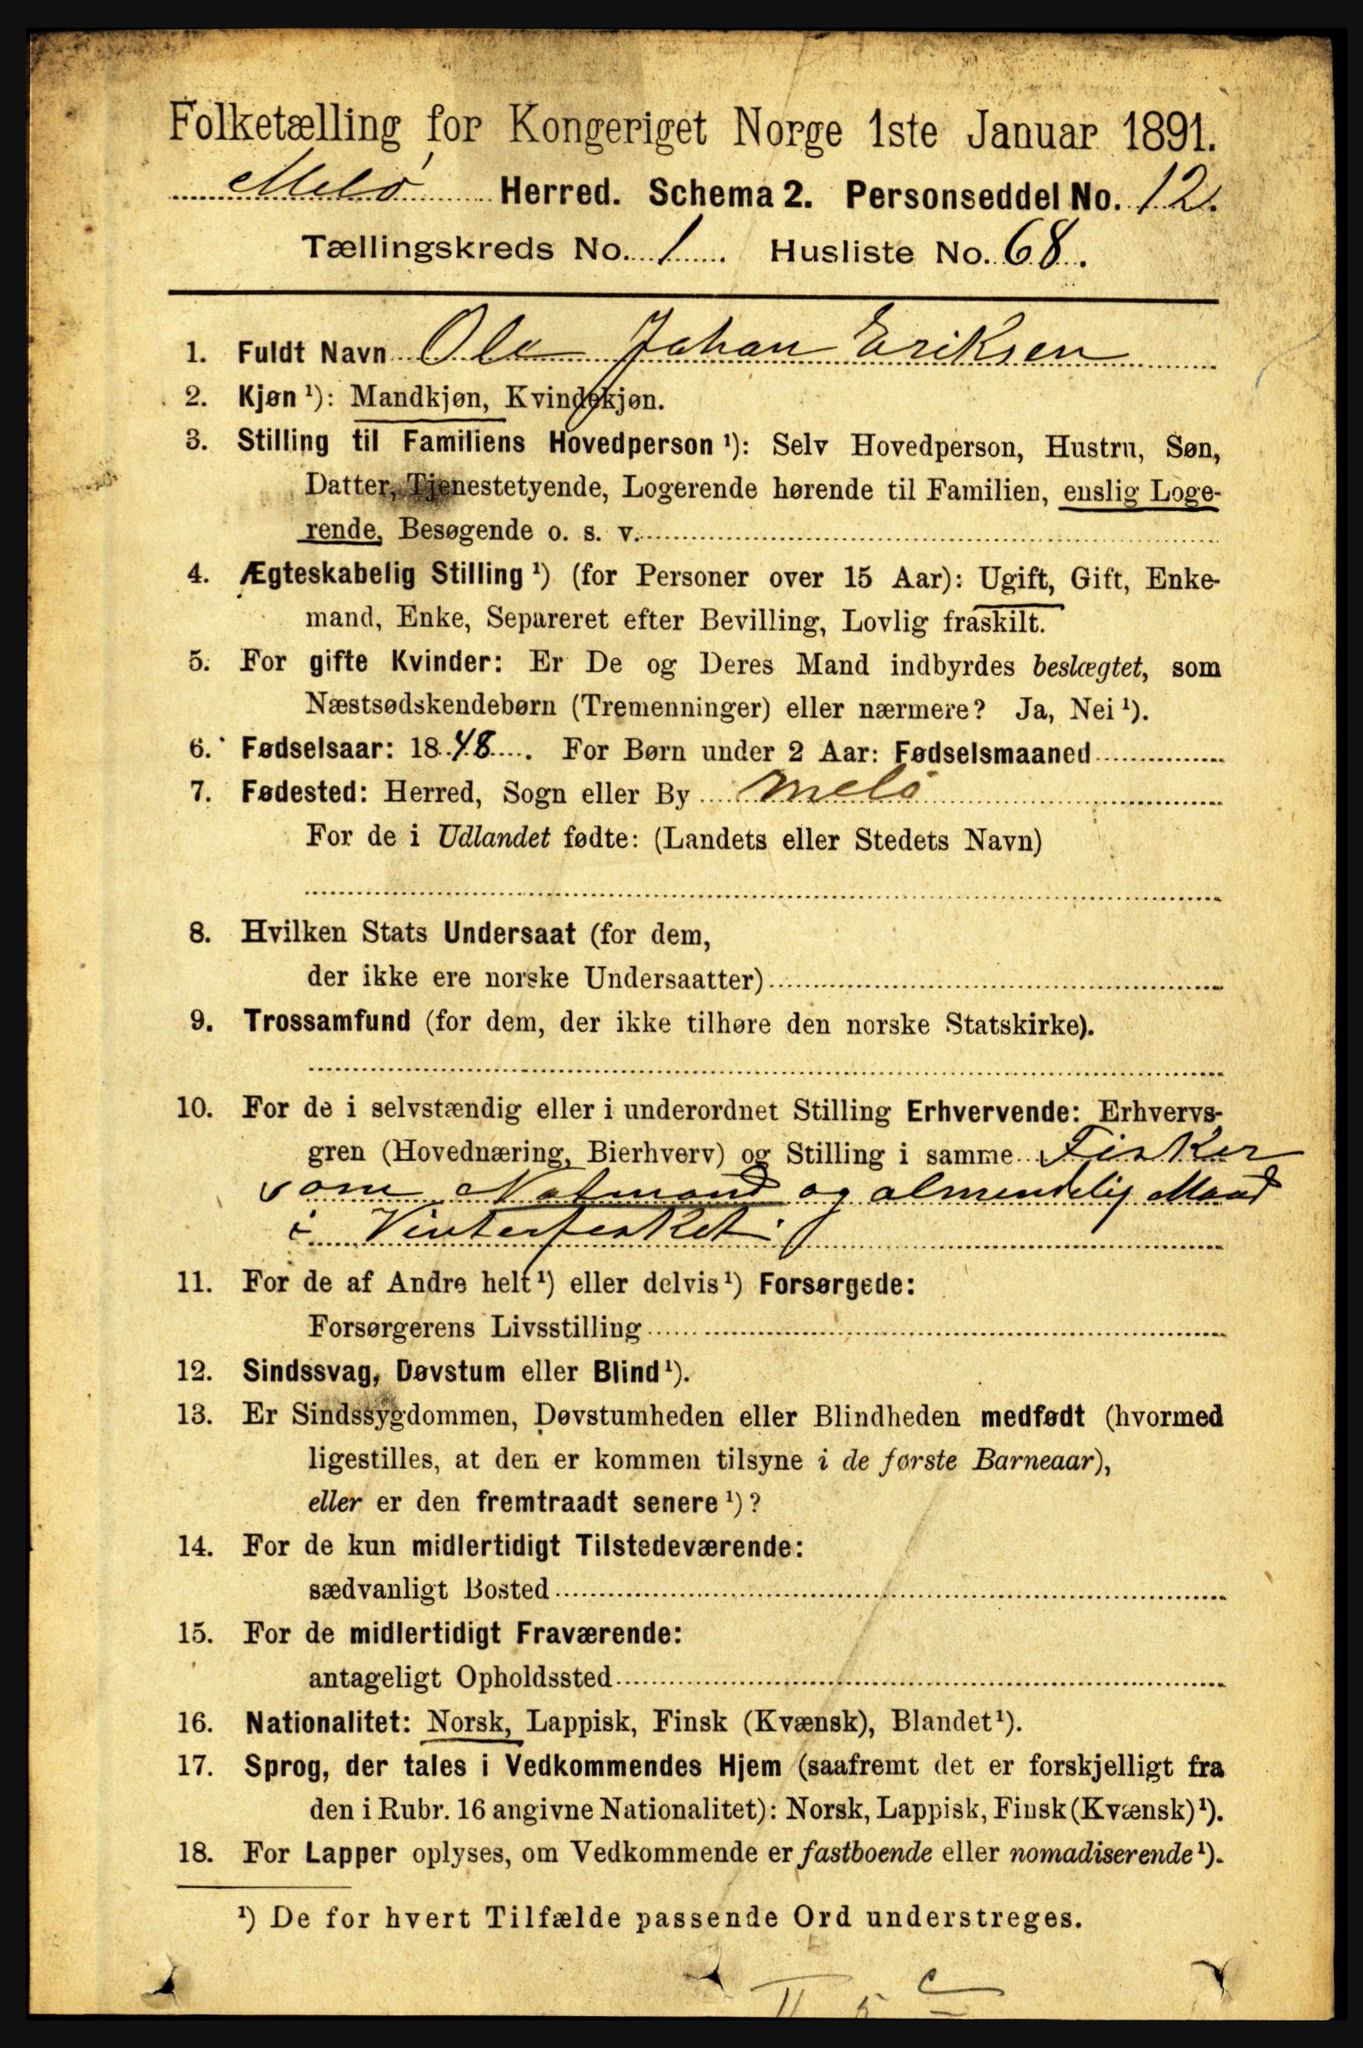 Folketælling for Kongeriget Norge 1ste Januar 1891.
Melø Herred. Schema 2. Personseddel No. 12.
Tællingskreds No. 1. Husliste No. 68.
1. Fuldt Navn Ole Johan Eriksen
2. Kjøn ¹): Mandkjøn, Kvindekjøn.
3. Stilling til Familiens Hovedperson ¹): Selv Hovedperson, Hustru, Søn,
Datter, Tjenestetyende, Logerende hørende til Familien, enslig Loge-
rende, Besøgende o. s. v.
4. Ægteskabelig Stilling ¹) (for Personer over 15 Aar): Ugift, Gift, Enke-
mand, Enke, Separeret efter Bevilling, Lovlig fraskilt.
5. For gifte Kvinder: Er De og Deres Mand indbyrdes beslægtet, som
Næstsødskendebørn (Tremenninger) eller nærmere? Ja, Nei ¹).
6. Fødselsaar: 1848. For Børn under 2 Aar: Fødselsmaaned
7. Fødested: Herred, Sogn eller By Melø
For de i Udlandet fødte: (Landets eller Stedets Navn)
8. Hvilken Stats Undersaat (for dem,
der ikke ere norske Undersaatter)
9. Trossamfund (for dem, der ikke tilhøre den norske Statskirke).
10. For de i selvstændig eller i underordnet Stilling Erhvervende: Erhvervs-
gren (Hovednæring, Bierhverv) og Stilling i samme Fisker
som Notmand og almendelig Mand
i Vinterfisket.
11. For de af Andre helt ¹) eller delvis ¹) Forsørgede:
Forsørgerens Livsstilling
12. Sindssvag, Døvstum eller Blind ¹).
13. Er Sindssygdommen, Døvstumheden eller Blindheden medfødt (hvormed
ligestilles, at den er kommen tilsyne i de første Barneaar),
eller er den fremtraadt senere ¹)?
14. For de kun midlertidigt Tilstedeværende:
sædvanligt Bosted
15. For de midlertidigt Fraværende:
antageligt Opholdssted
16. Nationalitet: Norsk, Lappisk, Finsk (Kvænsk), Blandet ¹).
17. Sprog, der tales i Vedkommendes Hjem (saafremt det er forskjelligt fra
den i Rubr. 16 angivne Nationalitet): Norsk, Lappisk, Finsk (Kvænsk) ¹).
18. For Lapper oplyses, om Vedkommende er fastboende eller nomadiserende ¹).
¹) De for hvert Tilfælde passende Ord understreges.
II 5 c